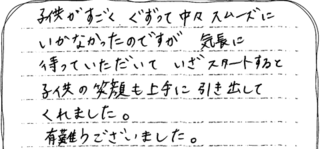 子供がすごく ぐずって中々スムーズに
いかなかったのですが 気長に
待っていただいて いざスタートすると
子供の笑顔も上手に引き出して
くれました。
有難うございました。